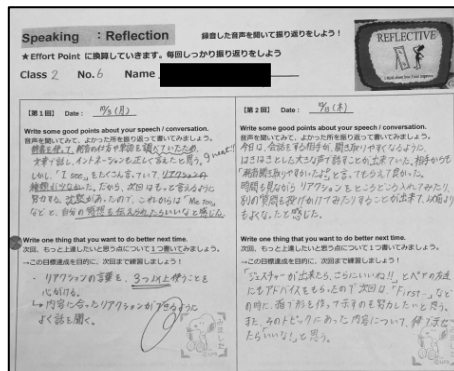 Speaking : Reflection
録音した音声を聞いて振り返りをしよう！
★Effort Point に換算していきます。毎回しっかり振り返りをしよう
Class 2 No. 6 Name
REFLECTIVE
【第１回】 Date: 10/3 (月)
Write some good points about your speech / conversation.
音声を聞いてみて、よかった所を振り返って書いてみましょう。
文章で話し、イントネーションも正しく言えたと思う。
しかし、「I see」をたくさん言っていて、リアクションの
種類が少なかった。だから、次回はもっと言えるように
努力する。沈黙があったので、これからは「Me too」
などと、自分の感想も伝えられたらいいなと感じた。
Write one thing that you want to do better next time.
次回、もっと上達したいと思う点について１つ書いてみましょう。
→この目標達成を目的に、次回まで練習しましょう！
・リアクションの言葉を、3つ以上使うことを
心がける。
内容に合ったリアクションができるように
よく話を聞く。
【第２回】 Date: (木)
Write some good points about your speech / conversation.
音声を聞いてみて、よかった所を振り返って書いてみましょう。
今日は、会話をする相手が、聞き取りやすくなるように、
はきはきとした大きな声で話すことが出来ていた。相手からも
と言ってもらえて良かった。
時間も見ながらリアクションをところどころ入れてみたり、
別の質問も投げかけてみたりすることが出来て、以前より
もよくなったと感じた。
Write one thing that you want to do better next time.
次回、もっと上達したいと思う点について１つ書いてみましょう。
→この目標達成を目的に、次回まで練習しましょう！
「ジェスチャーが出来たら、さらにいいね!!」とペアの友達
にもアドバイスをもらったので次回は、「First…」など
の時に、指で形も作って示すのも努力したいと思う。
また、そのトピックにあった内容について、
たらいいな！と思う。